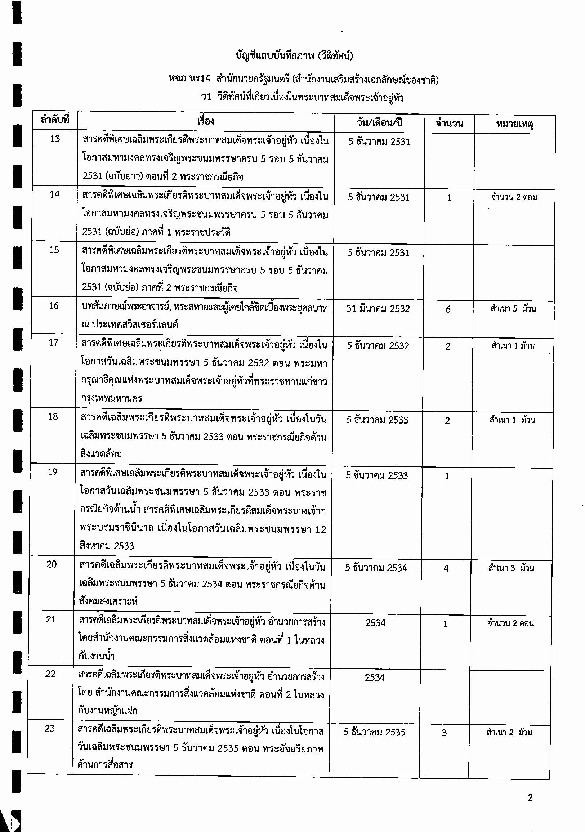 บัญชีแถบบันทึกภาพ (วีดิทัศน์)
หจช นร14 สำนักนายกรัฐมนตรี (สำนักงานเสริมสร้างเอกลักษณ์ของชาติ)
ว1 วีดิทัศน์ที่เกี่ยวเนื่องในพระบาทสมเด็จพระเจ้าอยู่หัว
ลำดับที่ เรื่อง วัน/เดือน/ปี จำนวน หมายเหตุ
13 สารคดีพิเศษเฉลิมพระเกียรติพระบาทสมเด็จพระเจ้าอยู่หัว เนื่องใน 5 ธันวาคม 2531
โอกาสมหามงคลทรงเจริญพระชนมพรรษาครบ 5 รอบ 5 ธันวาคม
2531 (ฉบับยาว) ตอนที่ 2 พระราชกรณียกิจ
14 สารคดีพิเศษเฉลิมพระเกียรติพระบาทสมเด็จพระเจ้าอยู่หัว เนื่องใน 5 ธันวาคม 2531 1 จำนวน 2 ตอน
โอกาสมหามงคลทรงเจริญพระชนมพรรษาครบ 5 รอบ 5 ธันวาคม
2531 (ฉบับย่อ) ภาคที่ 1 พระราชประวัติ
15 สารคดีพิเศษเฉลิมพระเกียรติพระบาทสมเด็จพระเจ้าอยู่หัว เนื่องใน 5 ธันวาคม 2531
โอกาสมหามงคลทรงเจริญพระชนมพรรษาครบ 5 รอบ 5 ธันวาคม
2531 (ฉบับย่อ) ภาคที่ 2 พระราชกรณียกิจ
16 บทสัมภาษณ์พระอาจารย์, พระสหายและผู้เคยใกล้ชิดเบื้องพระยุคลบาท 31 มีนาคม 2532 6 สำเนา 5 ม้วน
ณ ประเทศสวิสเซอร์แลนด์
17 สารคดีพิเศษเฉลิมพระเกียรติพระบาทสมเด็จพระเจ้าอยู่หัว เนื่องใน 5 ธันวาคม 2532 2 สำเนา 1 ม้วน
โอกาสวันเฉลิมพระชนมพรรษา 5 ธันวาคม 2532 ตอน พระมหา
กรุณาธิคุณแห่งพระบาทสมเด็จพระเจ้าอยู่หัวที่พระราชทานแก่ชาว
กรุงเทพมหานคร
18 สารคดีเฉลิมพระเกียรติพระบาทสมเด็จพระเจ้าอยู่หัว เนื่องในวัน 5 ธันวาคม 2533 2 สำเนา 1 ม้วน
เฉลิมพระชนมพรรษา 5 ธันวาคม 2533 ตอน พระราชกรณียกิจด้าน
สิ่งแวดล้อม
19 สารคดีพิเศษเฉลิมพระเกียรติพระบาทสมเด็จพระเจ้าอยู่หัว เนื่องใน 5 ธันวาคม 2533 1
โอกาสวันเฉลิมพระชนมพรรษา 5 ธันวาคม 2533 ตอน พระราช
กรณียกิจด้านน้ำ สารคดีพิเศษเฉลิมพระเกียรติสมเด็จพระนางเจ้าฯ
พระบรมราชินีนาถ เนื่องในโอกาสวันเฉลิมพระชนมพรรษา 12
สิงหาคม 2533
20 สารคดีเฉลิมพระเกียรติพระบาทสมเด็จพระเจ้าอยู่หัว เนื่องในวัน 5 ธันวาคม 2534 4 สำเนา 3 ม้วน
เฉลิมพระชนมพรรษา 5 ธันวาคม 2534 ตอน พระราชกรณียกิจด้าน
สังคมสงเคราะห์
21 สารคดีเฉลิมพระเกียรติพระบาทสมเด็จพระเจ้าอยู่หัว อำนวยการสร้าง 2534 1 จำนวน 2 ตอน
โดยสำนักงานคณะกรรมการสิ่งแวดล้อมแห่งชาติ ตอนที่ 1 ในหลวง
กับงานน้ำ
22 สารคดีเฉลิมพระเกียรติพระบาทสมเด็จพระเจ้าอยู่หัว อำนวยการสร้าง 2534
โดย สำนักงานคณะกรรมการสิ่งแวดล้อมแห่งชาติ ตอนที่ 2 ในหลวง
กับงานหญ้าแฝก
23 สารคดีเฉลิมพระเกียรติพระบาทสมเด็จพระเจ้าอยู่หัว เนื่องในโอกาส 5 ธันวาคม 2535 3 สำเนา 2 ม้วน
วันเฉลิมพระชนมพรรษา 5 ธันวาคม 2535 ตอน พระอัจฉริยภาพ
ด้านการสื่อสาร
2